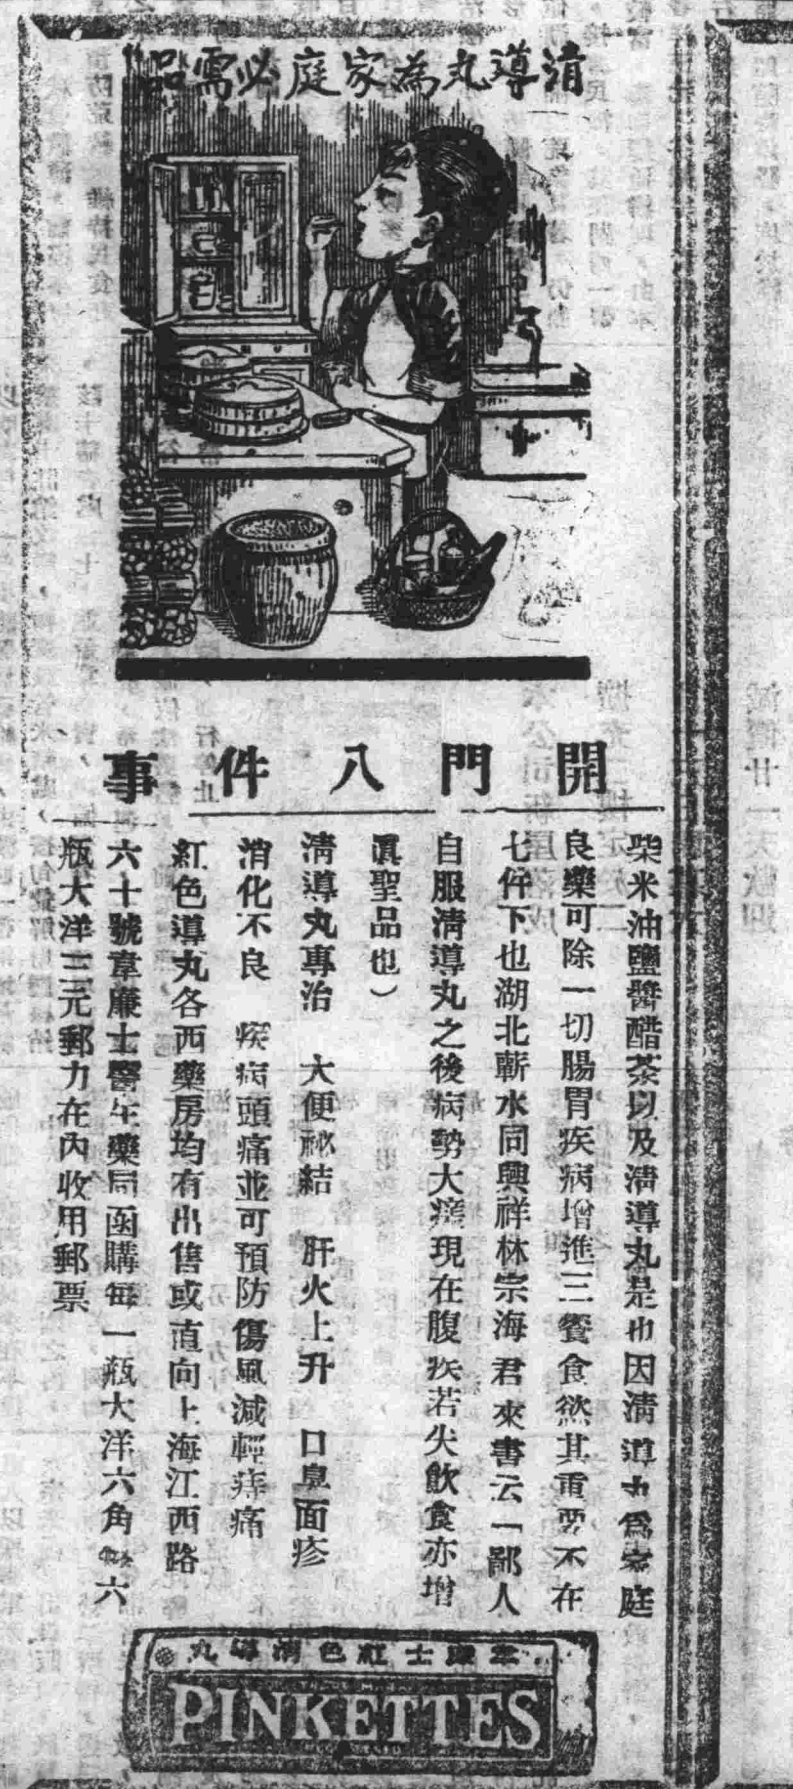 清導丸為家庭必需品
開門八件事
柴米油鹽醬醋茶以及清導丸是也因清導丸爲家庭
良藥可除一切腸胃疾病增進三餐食慾其重要不在
七件下也湖北蘄水同興祥林宗海君來書云「鄙人
自服清導丸之後病勢大瘥現在腹疾若失飲食亦增
眞聖品也）
清導丸專治　大便祕結　肝火上升　口臭面疹
消化不良　疾病頭痛並可預防傷風減輕痔痛
紅色導丸各西藥房均有出售或直向上海江西路
六十號韋廉士醫生藥局函購每一瓶大洋六角每六
瓶大洋三元郵力在內收用郵票
韋廉士紅色清導丸
PINKETTES